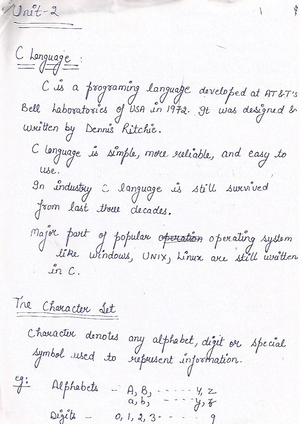 Unit-2
1
C Language:
C is a programing language developed at AT&T's
Bell Laboratories of USA in 1972. It was designed &
written by Dennis Ritchie.
C language is simple, more reliable, and easy to
use.
In industry C language is still survived
from last three decades.
Major part of popular operation operating system
like windows, UNIX, Linux are still written
in C.
The Character Set
Character denotes any alphabet, digit or special
symbol used to represent information.
eg: Alphabets - A, B, ----- Y, Z
a, b, ----- y, z
Digits - 0, 1, 2, 3 ----- 9